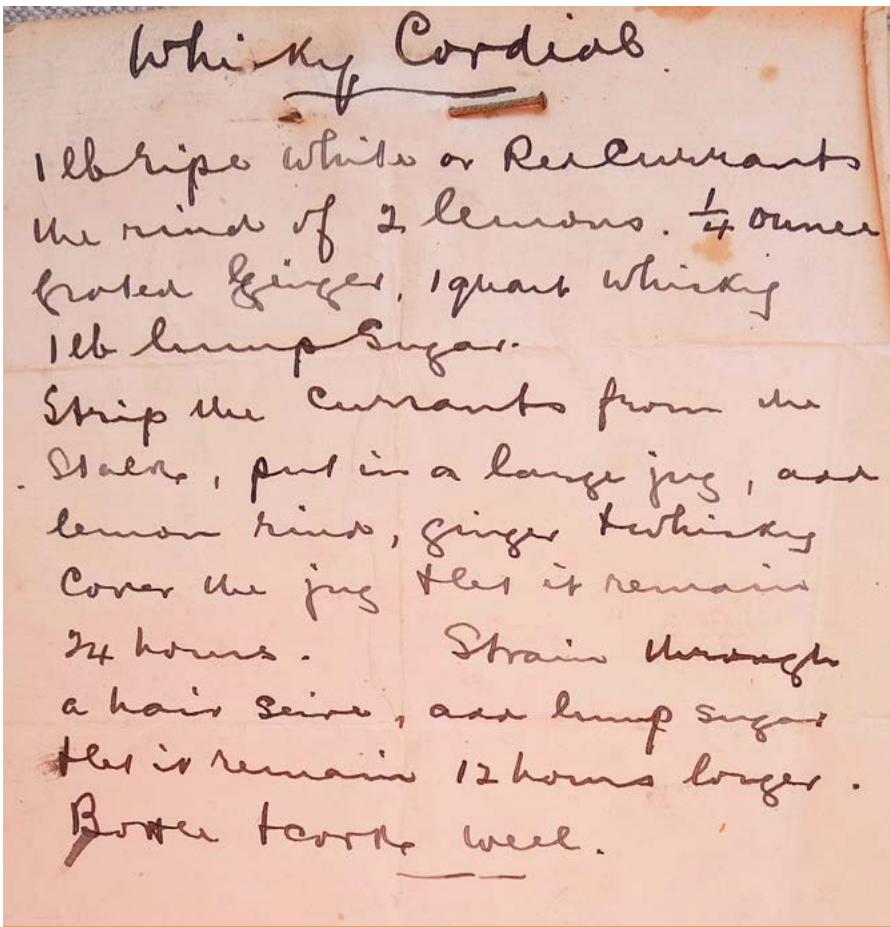 Whisky Cordial.
1 lb ripe white or Red Currants
the rind of 2 lemons. ¼ ounce
Grated Ginger, 1 quart Whisky
1 lb lump Sugar.
Strip the Currants from the
Stalks, put in a large jug, add
lemon rind, ginger + whisky
Cover the jug + let it remain
24 hours. Strain through
a hair seive, add lump sugar
+ let it remain 12 hours longer.
Bottle + cork well.